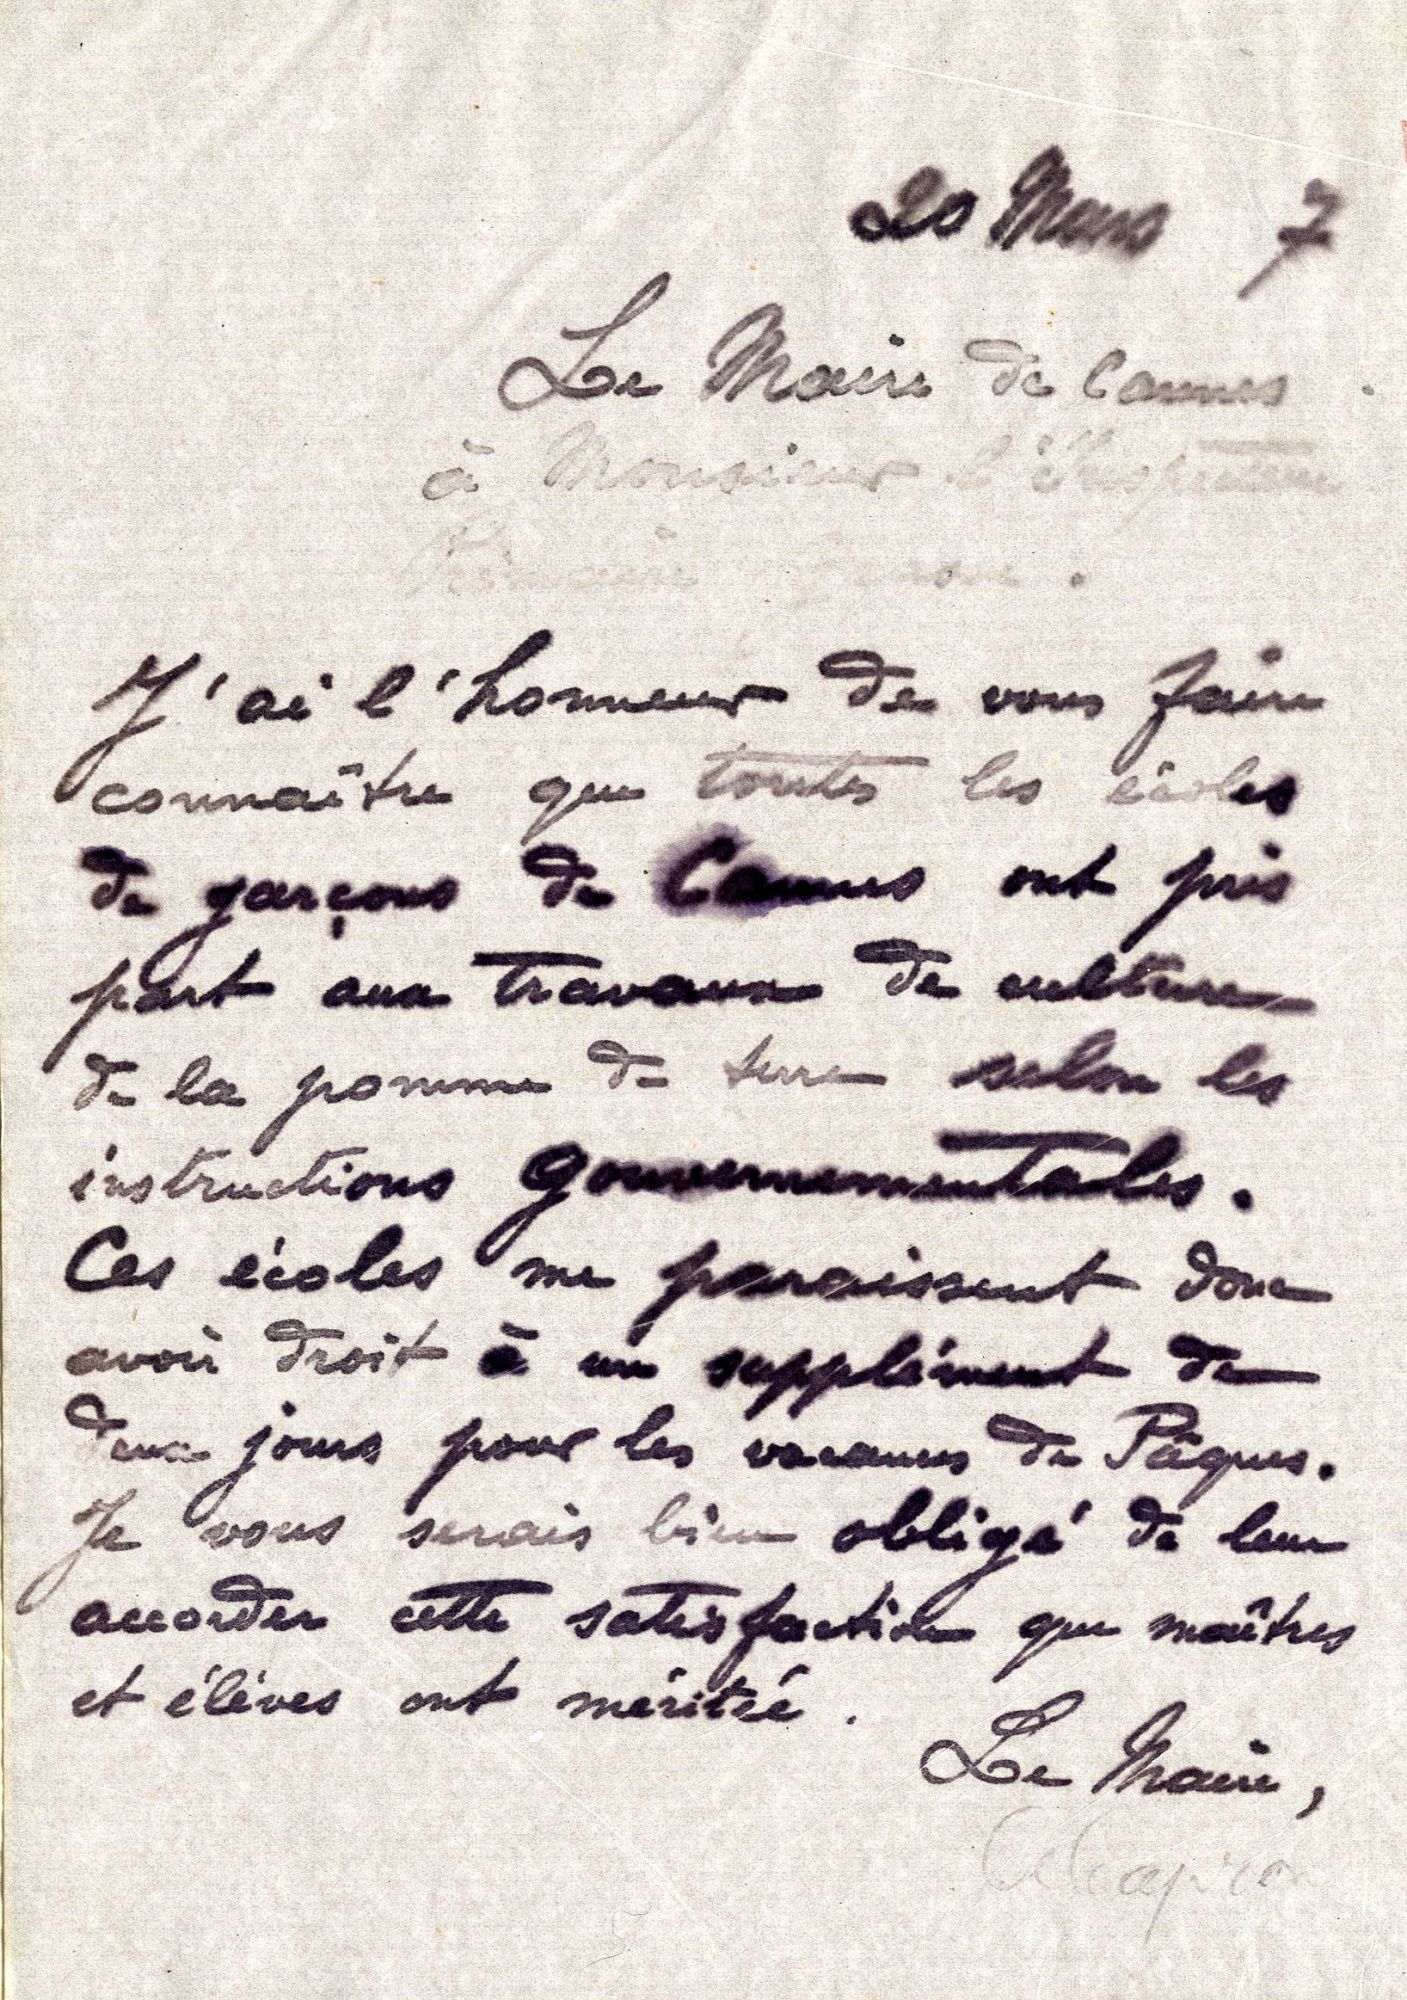 20 Mars 7
Le Maire de Cannes
à Monsieur l'Inspecteur
Primaire Grasse.
J'ai l'honneur de vous faire
connaître que toutes les écoles
de garçons de Cannes ont pris
part aux travaux de culture
de la pomme de terre selon les
instructions gouvernementales.
Ces écoles me paraissent donc
avoir droit à un supplément de
deux jours pour les vacances de Pâques.
Je vous serais bien obligé de leur
accorder cette satisfaction que maîtres
et élèves ont méritée.
Le Maire,
Capron